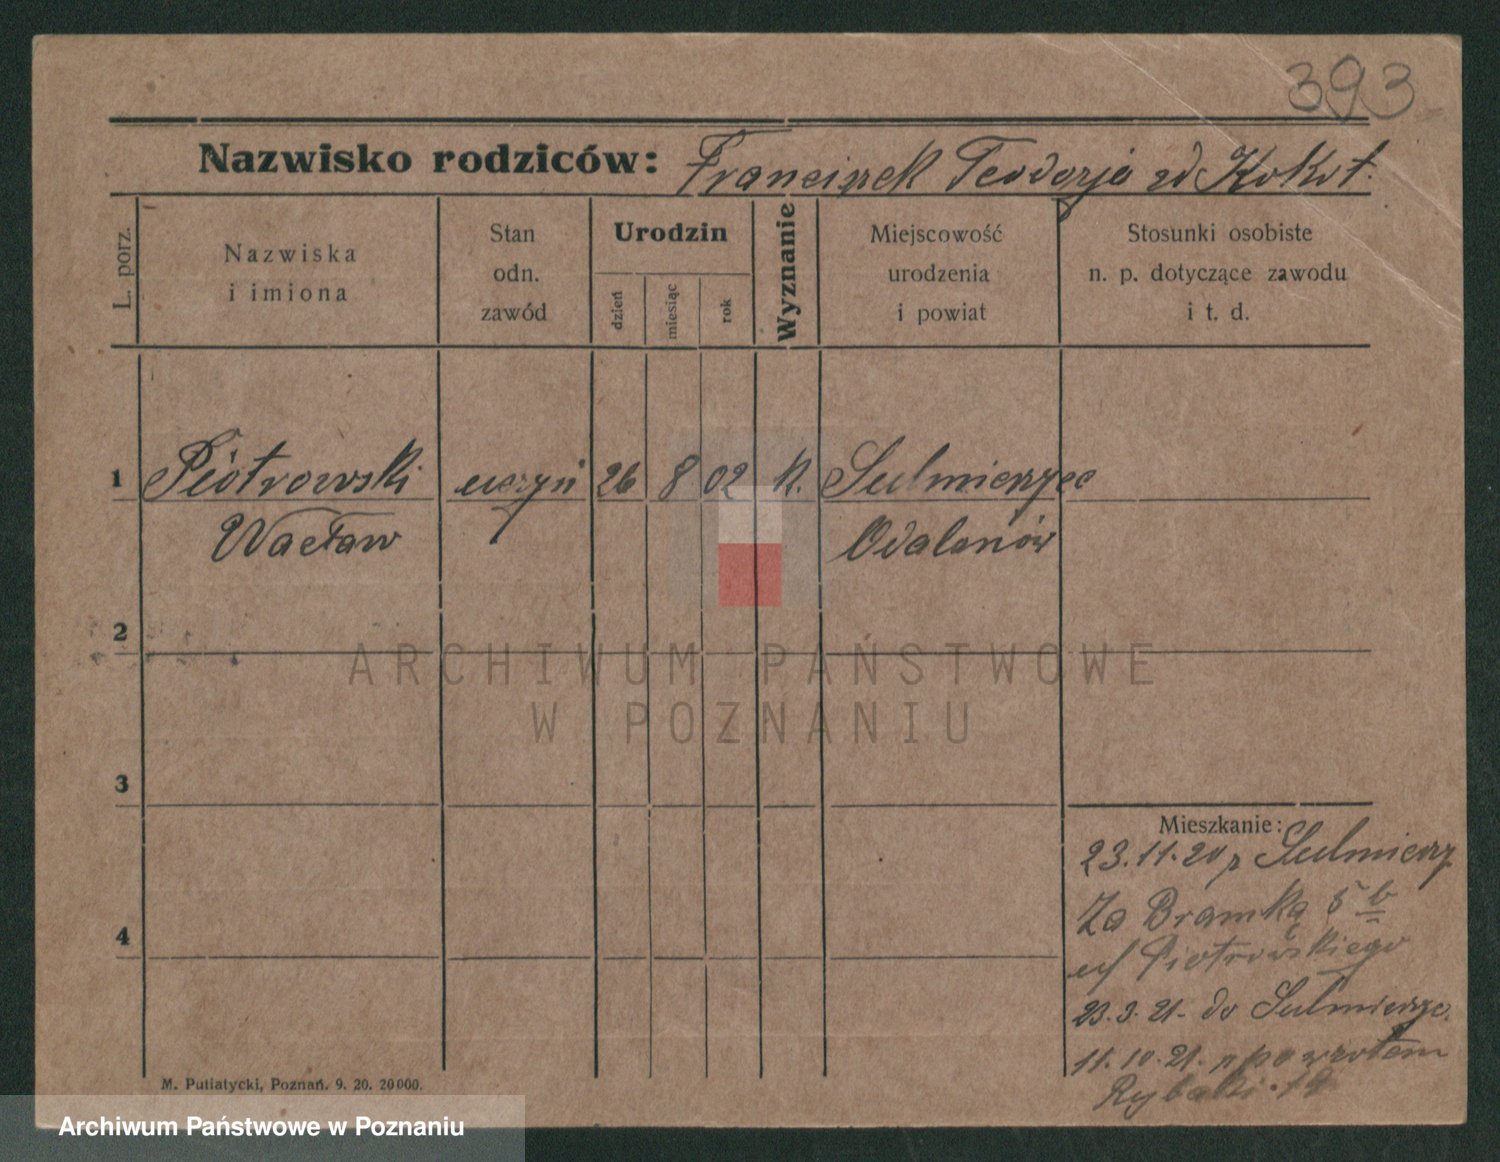 393
Nazwisko rodziców: Franciszek Teodozja zd Kokot.
L. porz.
Nazwiska
i imiona
Stan
odn.
zawód
Urodzin
dzień
miesiąc
rok
Wyznanie
Miejscowość
urodzenia
i powiat
Stosunki osobiste
n. p. dotyczące zawodu
i t. d.
1 Piotrowski uczyń 26 8 02 k. Sulmierzyce
Wacław Odalanów
2
ARCHIWUM PAŃSTWOWE
W POZNANIU
3
4
Mieszkanie:
23.11.20 z Sulmierz
Za Bramką 5 b
u/ Piotrowskiego
23.3.21. do Sulmierzyc.
11.10.21. z powrotem
Rybaki
M. Putiatycki, Poznań. 9. 20. 20000.
Archiwum Państwowe w Poznaniu